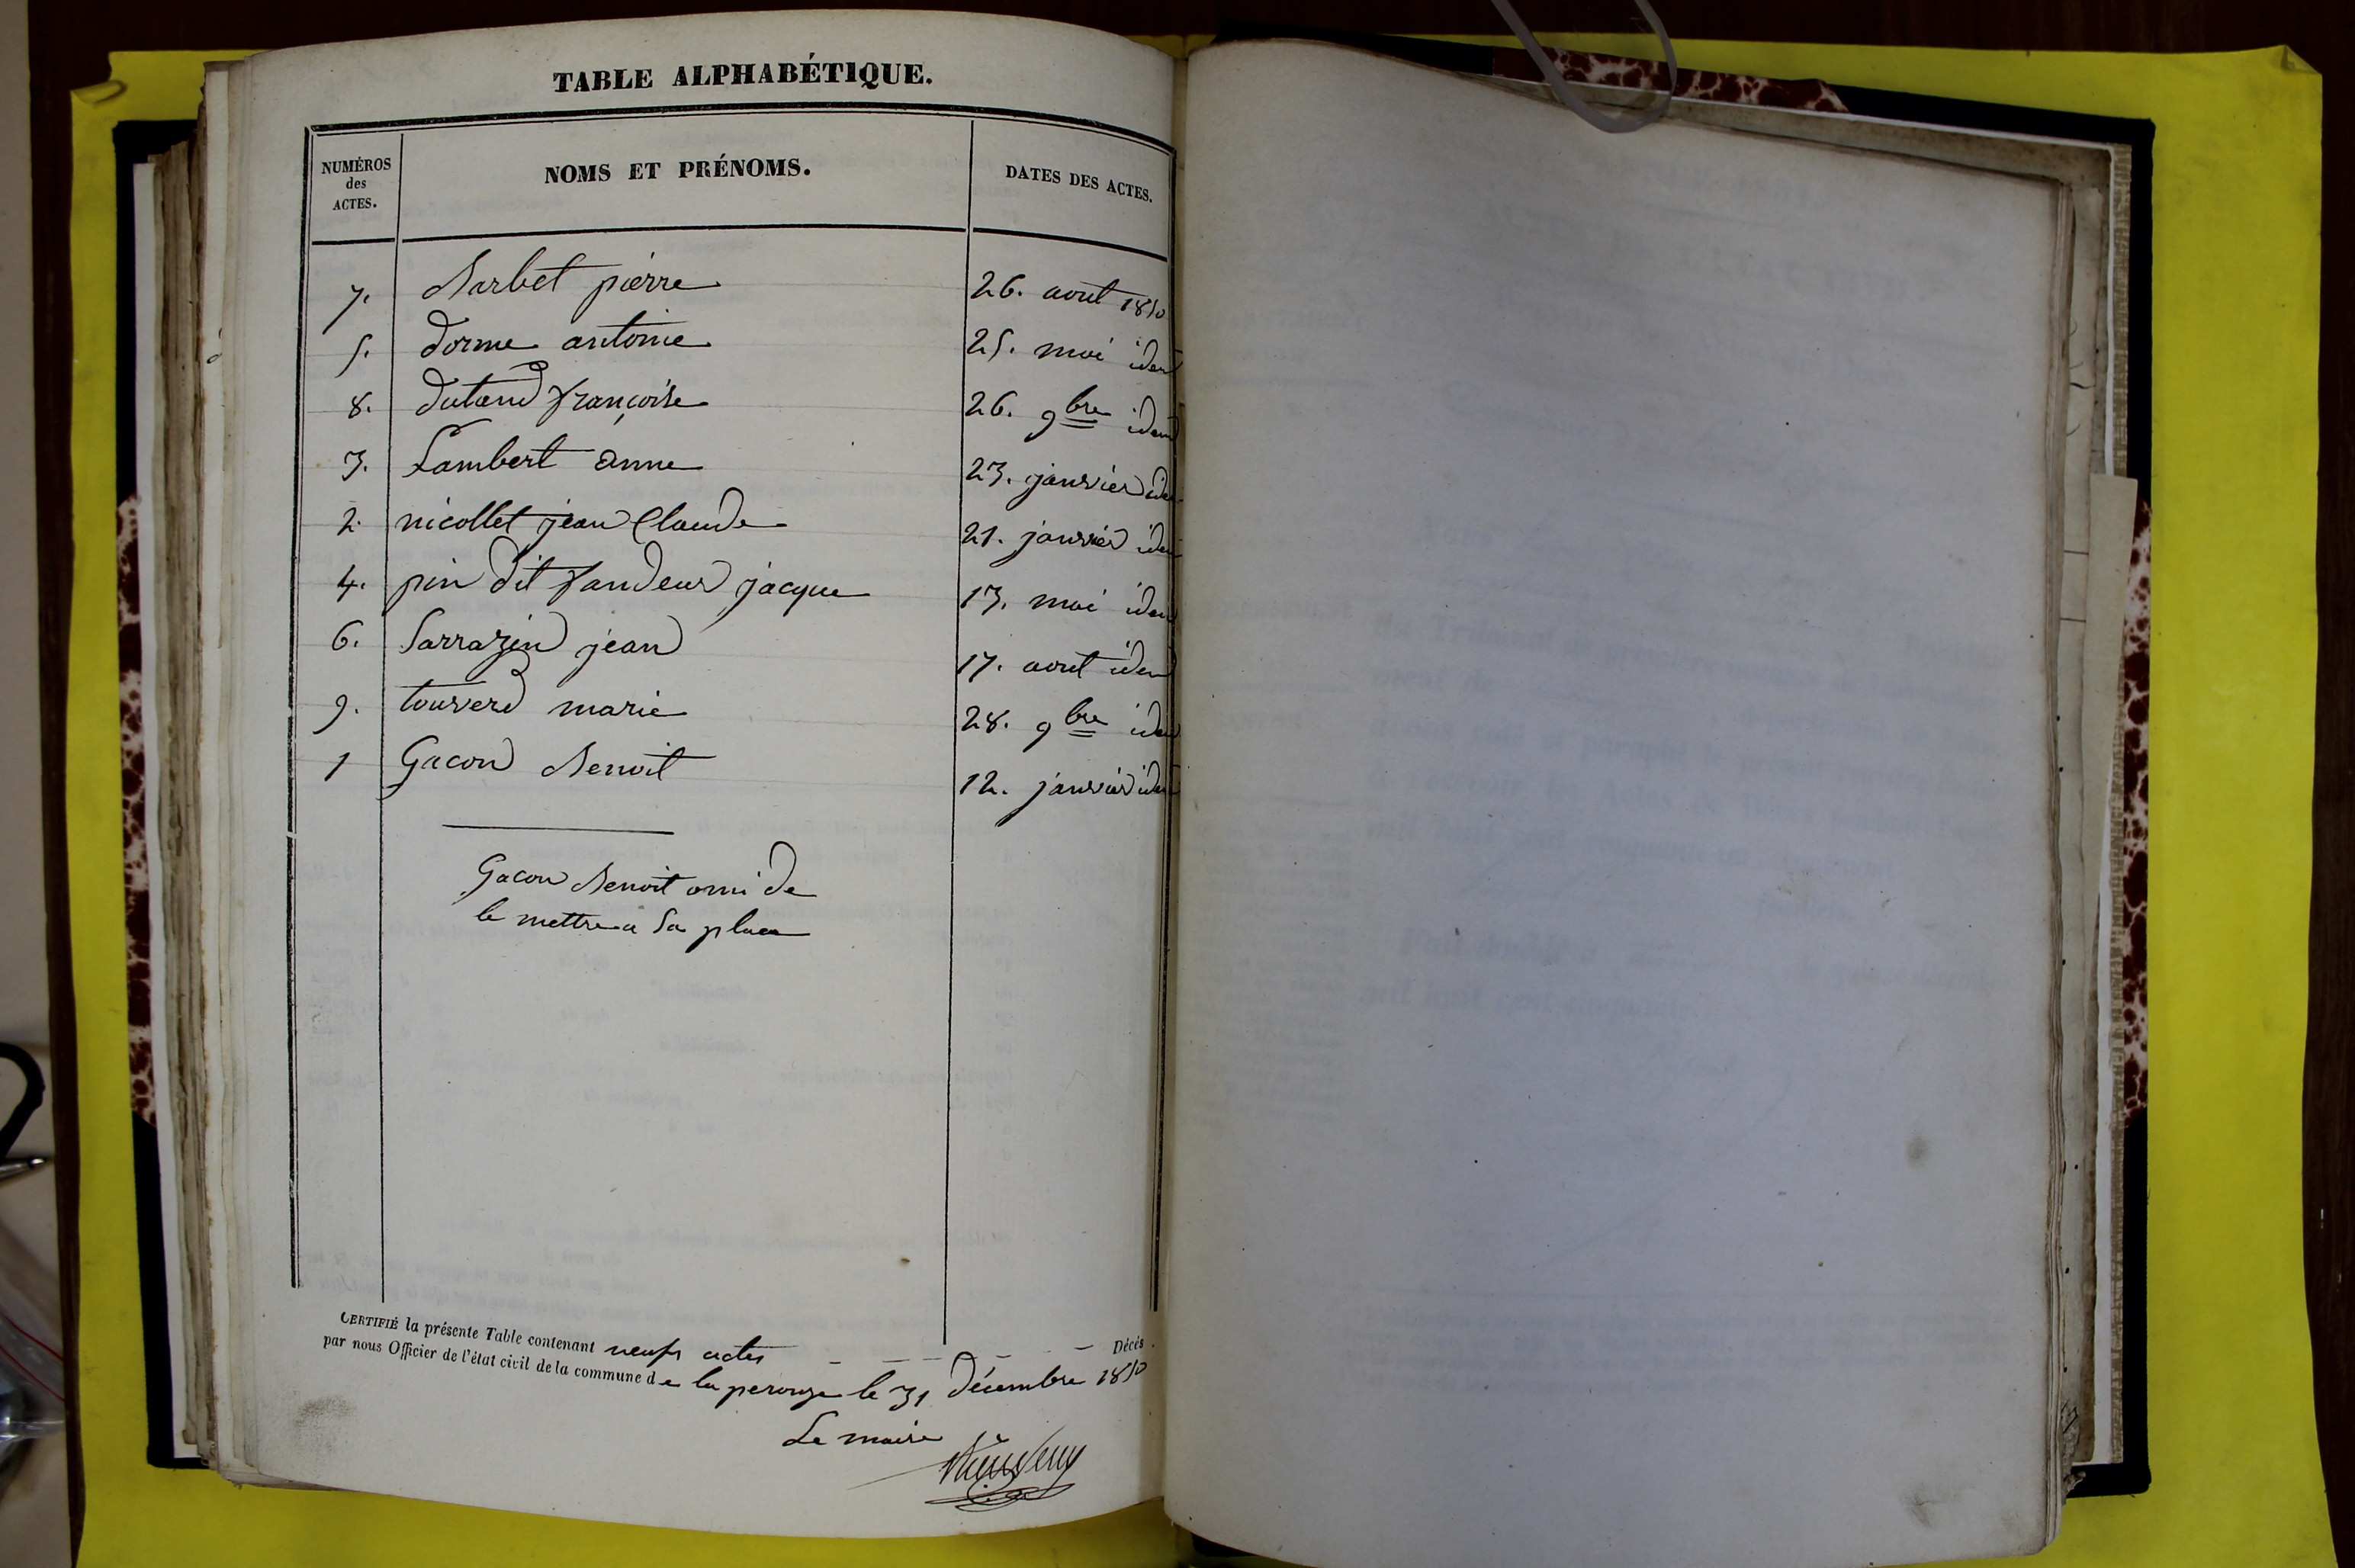 TABLE ALPHABÉTIQUE.
NUMÉROS des ACTES. NOMS ET PRÉNOMS. DATES DES ACTES.
7. Barbet pierre 26. aout 1850
5. dorme antoine 25. mai idem
8. françoise 26. 9bre idem
3. Lambert anne 23. janvier idem
2. nicollet jean Claude 21. janvier idem
4. pin dit jacque 13. mai idem
6. Sarrazin jean 17. aout idem
9. marie 28. 9bre idem
1 Gacon Benoit 12. janvier idem
Gacon Benoit omi de
le mettre a Sa place
CERTIFIÉ la présente Table contenant neufs actes Décès.
par nous Officier de l'état civil de la commune de la perouze le 31 décembre 1850
Le maire